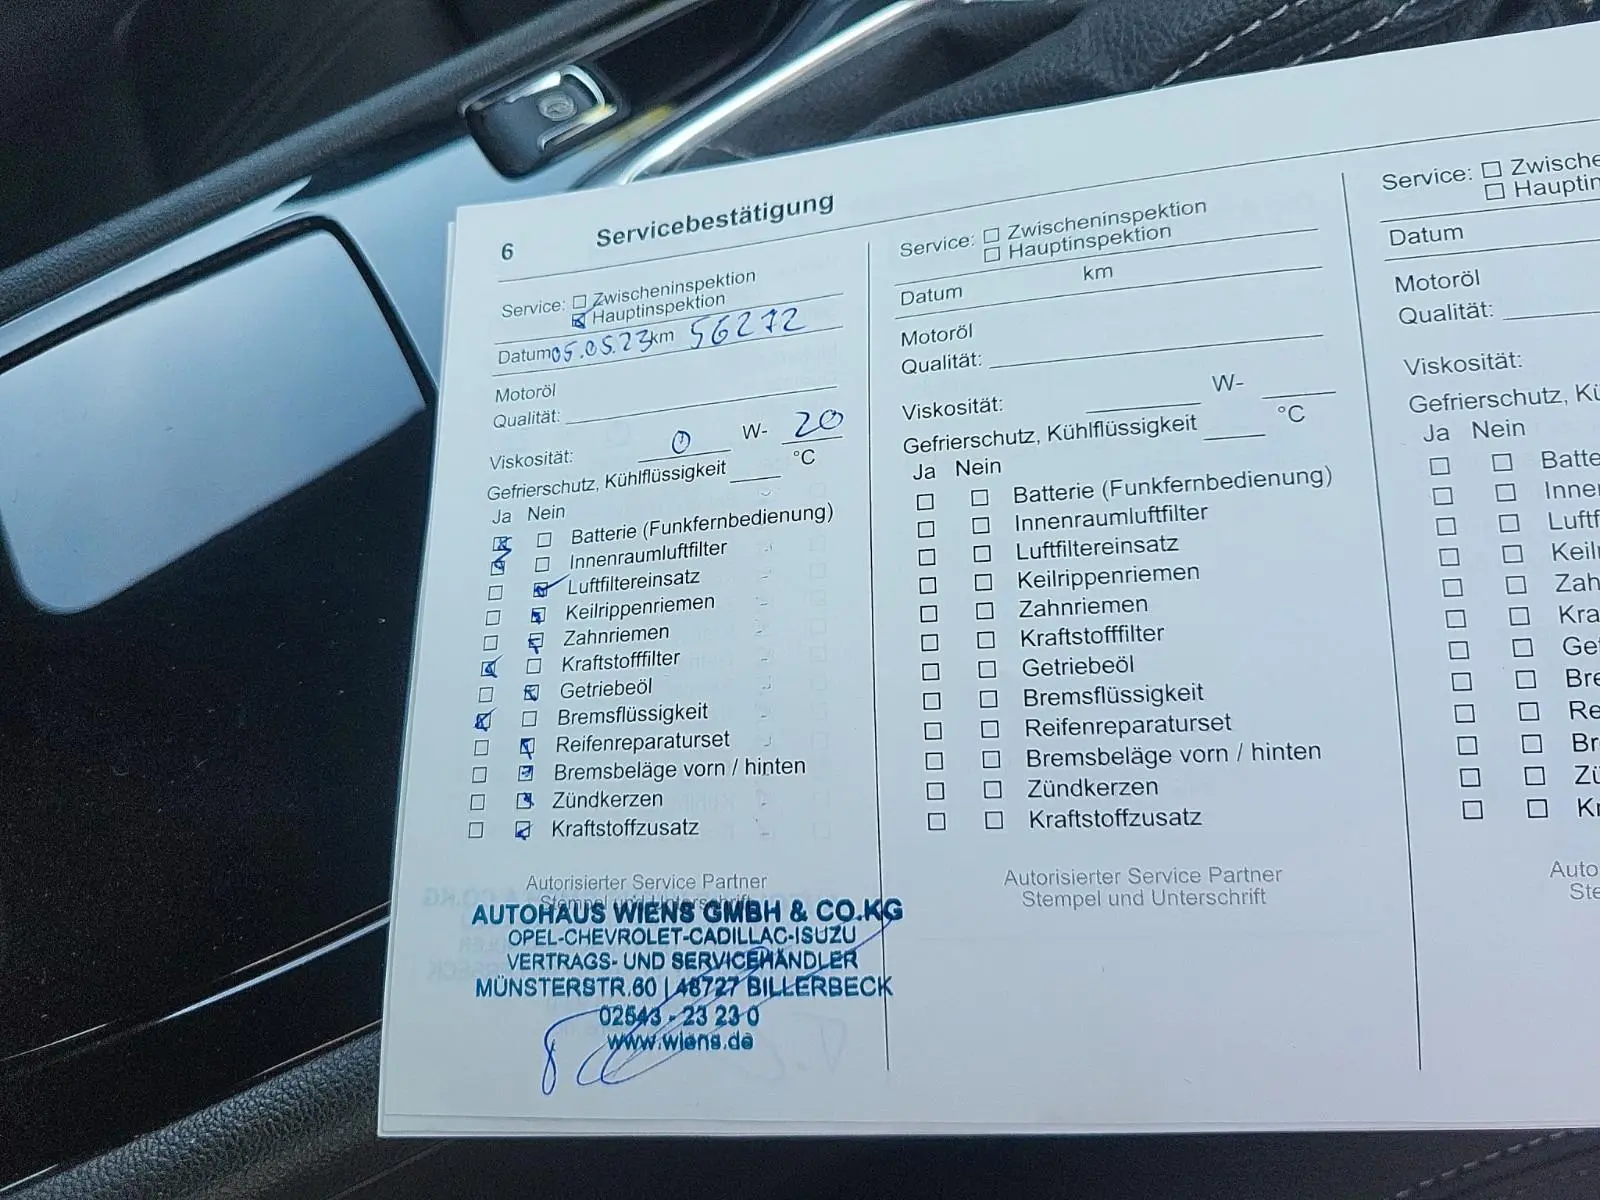 6 Servicebestätigung
Service: ☐ Zwischeninspektion
☒ Hauptinspektion
Datum 05.05.23 km 56272
Motoröl
Qualität:
Viskosität: 0 W- 20
Gefrierschutz, Kühlflüssigkeit °C
Ja Nein
☒ ☐ Batterie (Funkfernbedienung)
☒ ☐ Innenraumluftfilter
☐ ☒ Luftfiltereinsatz
☐ ☒ Keilrippenriemen
☐ ☒ Zahnriemen
☒ ☐ Kraftstofffilter
☐ ☒ Getriebeöl
☒ ☐ Bremsflüssigkeit
☐ ☒ Reifenreparaturset
☐ ☒ Bremsbeläge vorn / hinten
☐ ☒ Zündkerzen
☐ ☒ Kraftstoffzusatz
Autorisierter Service Partner
Stempel und Unterschrift
AUTOHAUS WIENS GMBH & CO.KG
OPEL-CHEVROLET-CADILLAC-ISUZU
VERTRAGS- UND SERVICEHÄNDLER
MÜNSTERSTR.60 | 48727 BILLERBECK
02543 - 23 23 0
www.wiens.de
Service: ☐ Zwischeninspektion
☐ Hauptinspektion
Datum km
Motoröl
Qualität:
Viskosität: W-
Gefrierschutz, Kühlflüssigkeit °C
Ja Nein
☐ ☐ Batterie (Funkfernbedienung)
☐ ☐ Innenraumluftfilter
☐ ☐ Luftfiltereinsatz
☐ ☐ Keilrippenriemen
☐ ☐ Zahnriemen
☐ ☐ Kraftstofffilter
☐ ☐ Getriebeöl
☐ ☐ Bremsflüssigkeit
☐ ☐ Reifenreparaturset
☐ ☐ Bremsbeläge vorn / hinten
☐ ☐ Zündkerzen
☐ ☐ Kraftstoffzusatz
Autorisierter Service Partner
Stempel und Unterschrift
Service: ☐ Zwische
☐ Hauptin
Datum
Motoröl
Qualität:
Viskosität:
Gefrierschutz, Kü
Ja Nein
☐ ☐ Batte
☐ ☐ Inne
☐ ☐ Luftf
☐ ☐ Keil
☐ ☐ Zah
☐ ☐ Kra
☐ ☐ Ge
☐ ☐ Bre
☐ ☐ Re
☐ ☐ Br
☐ ☐ Zü
☐ ☐ Kr
Auto
Ste